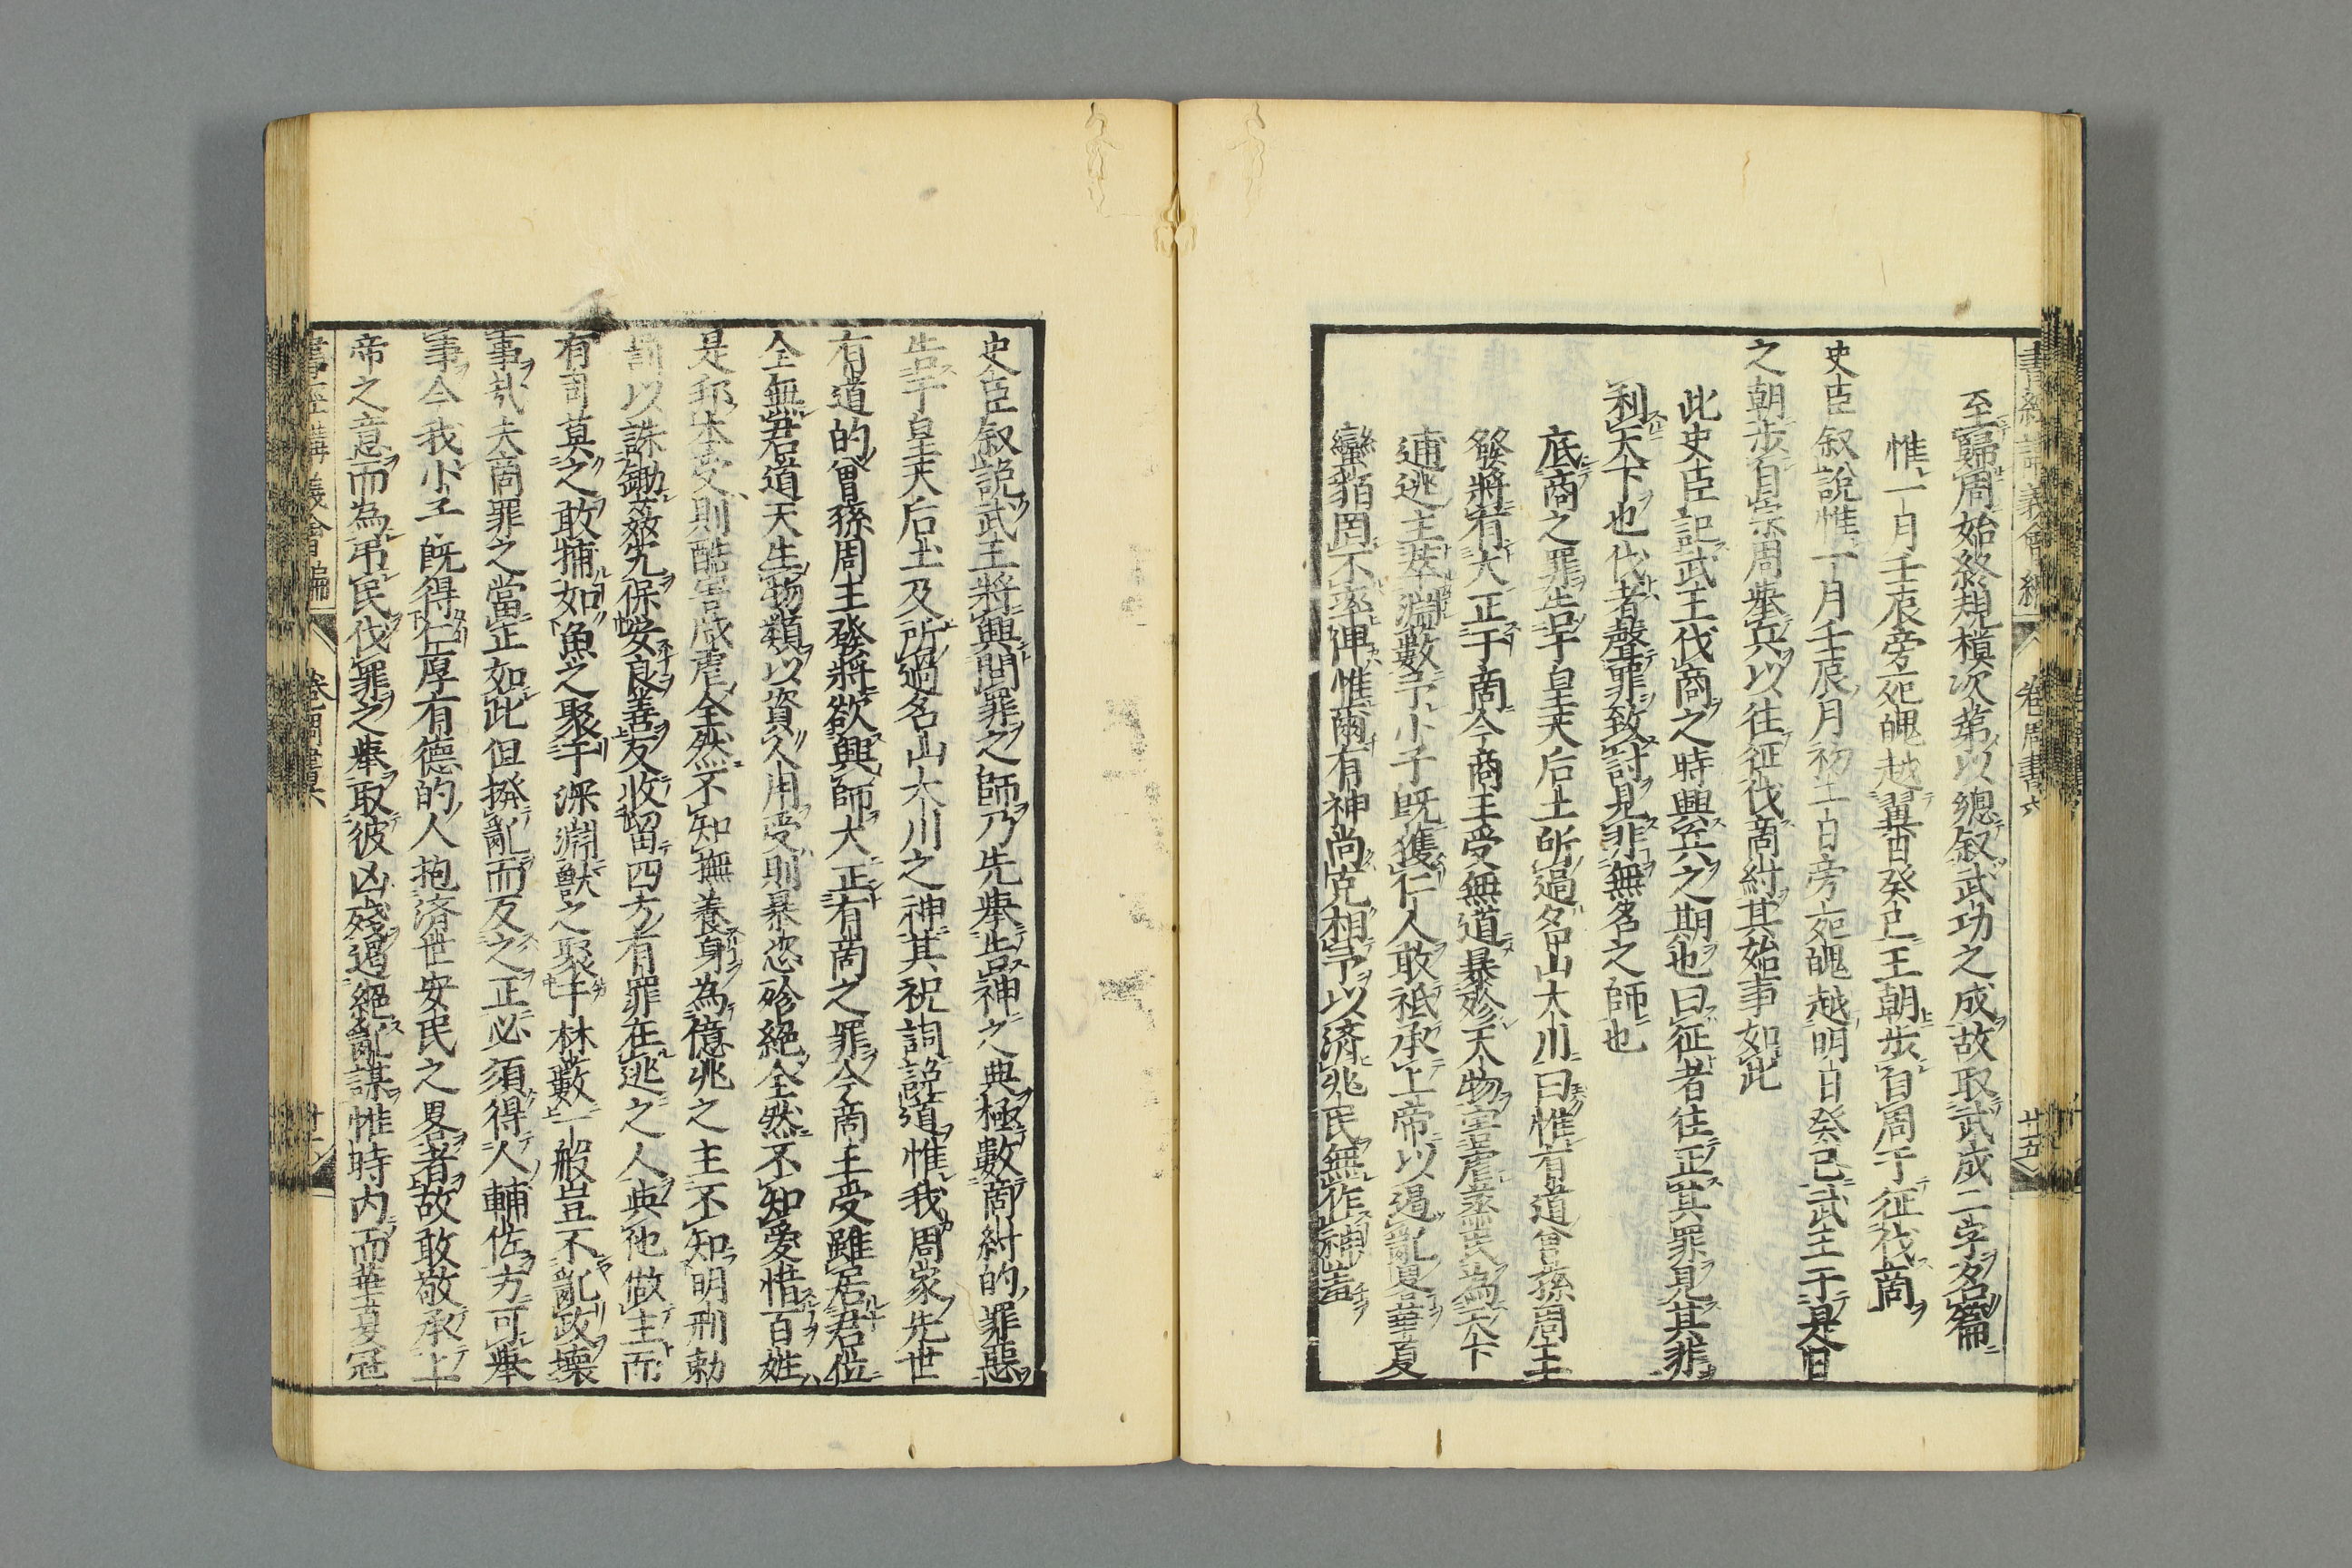 至歸周始終規模次第以總叙武功之成故取武成二字名篇
惟一月壬辰旁死魄越翼日癸巳王朝步自周于征伐商
史臣叙說惟一月壬辰月初二日旁死魄越明日癸巳武王于是日
之朝步自宗周舉兵以往征伐商紂其始事如此
此史臣記武王伐商之時興兵之期也曰征者往正其罪見其非
利天下也伐者聲罪致討見非無名之師也
底商之罪告于皇天后土所過名山大川曰惟有道曾孫周王
發將有大正于商今商王受無道暴殄天物害虐烝民為天下
逋逃主萃淵藪予小子既獲仁人敢祗承上帝以遏亂畧華夏
蠻貊罔不率俾惟爾有神尚克相予以濟兆民無作神羞
史臣叙說武王將興問罪之師乃先舉告神之典極數商紂的罪惡
告于皇天后土及所過名山大川之神其祝詞說道惟我周家先世
有道的曾孫周王發將欲興師大正有商之罪今商王受雖居君位
全無君道天生物類以資人用受則暴恣殄絕全然不知愛惜百姓
是邦本受則酷害咸虐全然不知撫養身為億兆之主不知明刑勅
罰以誅鋤姦宄保安良善反收留四方有罪在逃之人與他做主而
有司莫之敢捕如魚之聚于深淵獸之聚于林藪一般豈不亂政壞
事哉夫商罪之當正如此但撥亂而反之正必須得人輔佐方可舉
事今我小子既得仁厚有德的人抱濟世安民之畧者故敢敬承上
帝之意而為弔民伐罪之舉取彼凶殘遏絕亂謀惟時內而華夏冠
書經講義會編 卷周書六